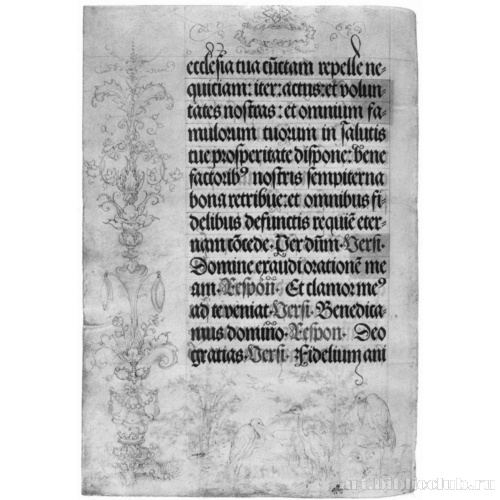 ecclesia tua cūctam repelle ne-
quiciam: iter: actus: et volun-
tates nostras: et omnium fa-
mulorum tuorum in salutis
tue prosperitate dispone: bene
factoribꝰ nostris sempiterna
bona retribue: et omnibus fi-
delibus defunctis requiē eter-
nam cōcede. Per dūm. Versi.
Domine exaudi orationē me
am. Respon. Et clamor meꝰ
ad te veniat. Versi. Benedica-
mus domino. Respon. Deo
gratias. Versi. Fidelium ani
art.biblioclub.ru